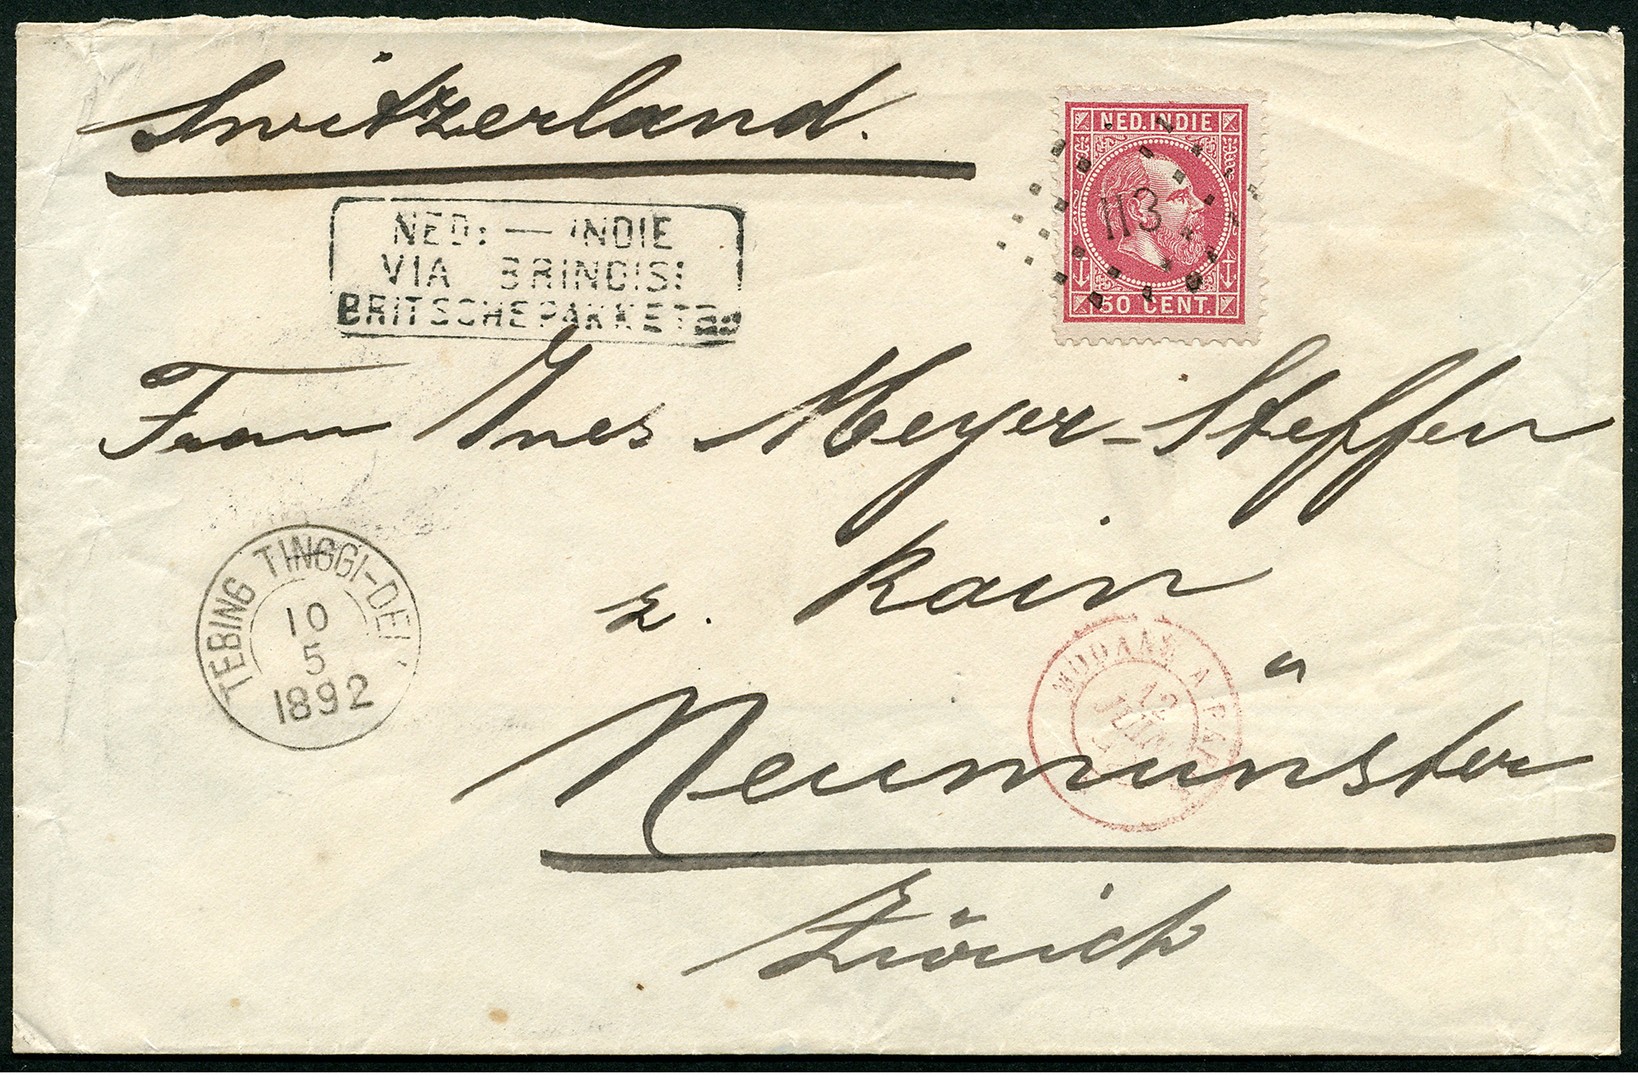 Switzerland.
NED. INDIE
113
50 CENT.
NED: — INDIE
VIA BRINDISI
BRITSCHEPAKKET
Frau Ines Meyer-Steffen
z. Rain
Neumünster
Zürich
TEBING TINGGI-DELI
10
5
1892
MODANE A PARIS
12
JUIN